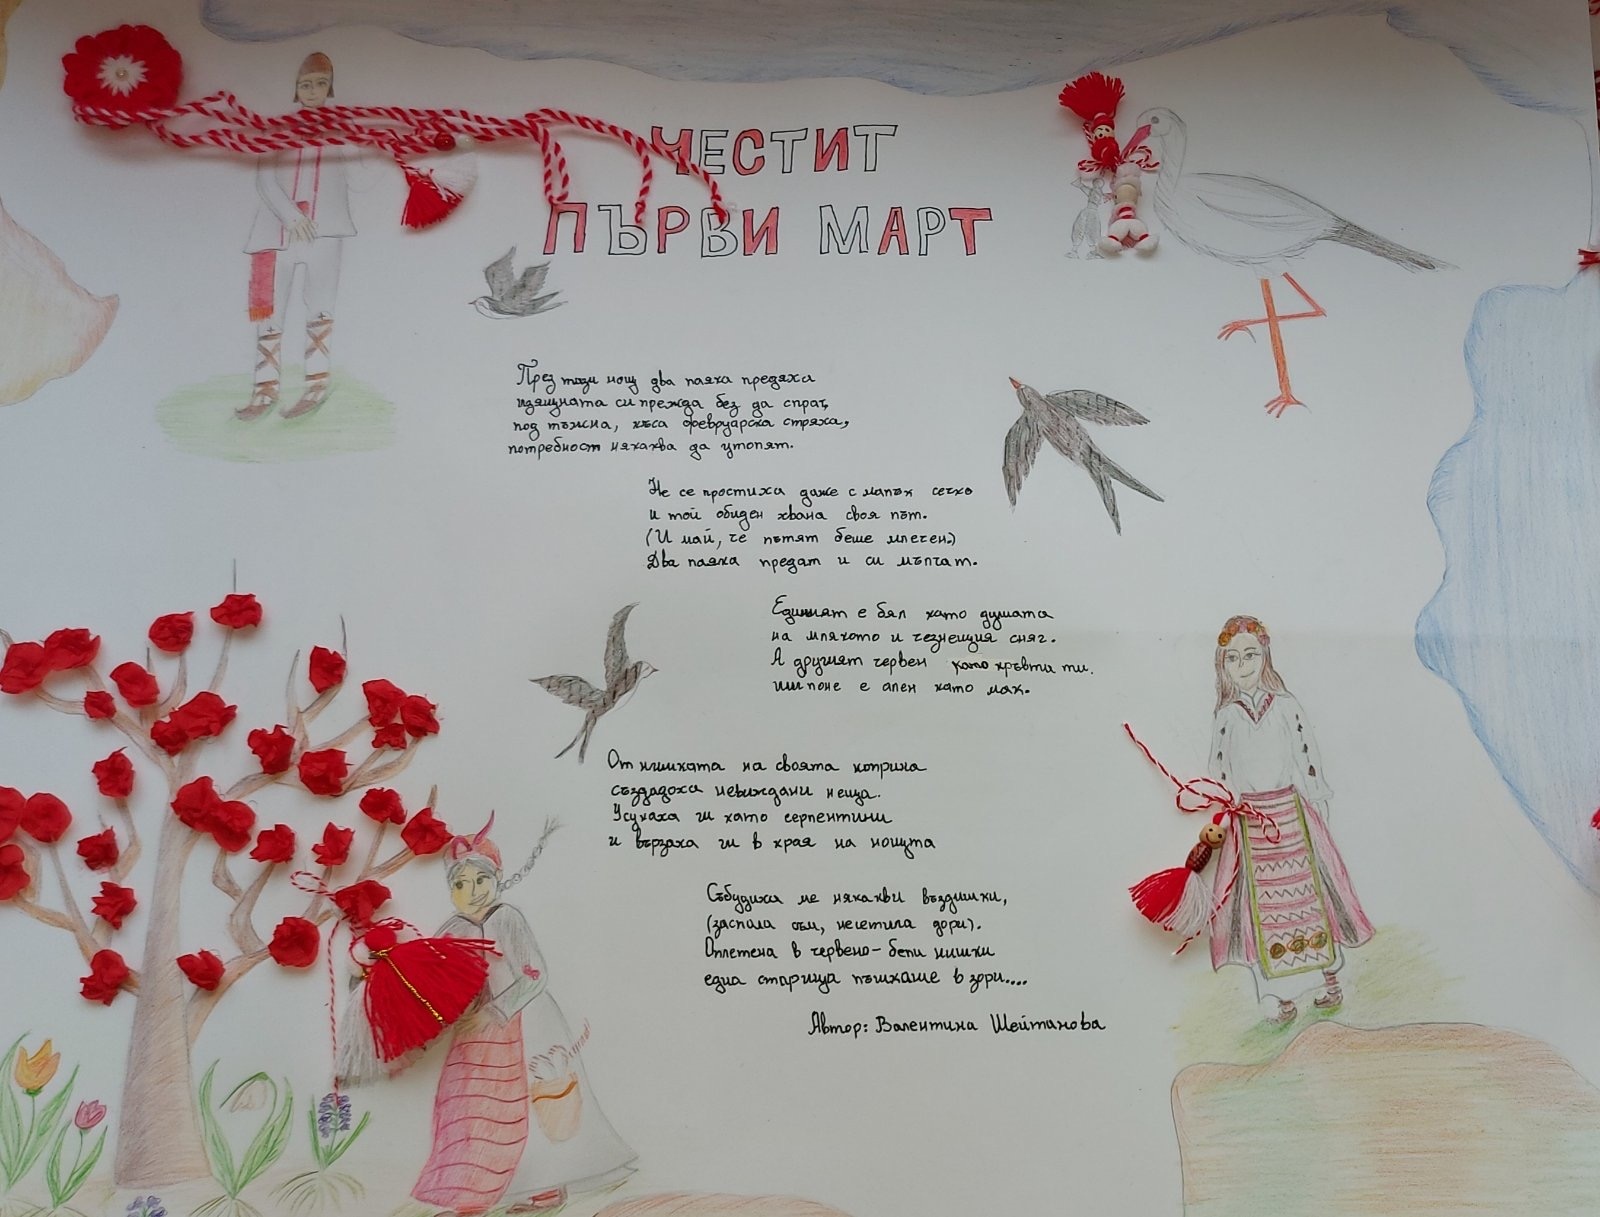 ЧЕСТИТ
ПЪРВИ МАРТ
През тази нощ два паяка предяха
изящната си прежда без да спрат,
под тъжна, къса февруарска стряха,
потребност някаква да утолят.
Не се простиха даже с малък сечко
и той обиден хвана своя път.
(И май, че пътят беше млечен.)
Два паяка предат и си мълчат.
Единият е бял като душата
на мляхото и чезнещия сняг.
А другият червен като кръвта ти.
или поне е ален като мак.
От нишката на своята коприна
създадоха невиждани неща.
Усукаха ги като серпентини
и вързаха ги в края на нощта
Събудиха ме някакви въздишки,
(заспала съм, несетила дори).
Оплетена в червено-бели нишки
една старица пъшкаше в зори....
Автор: Валентина Шейтанова